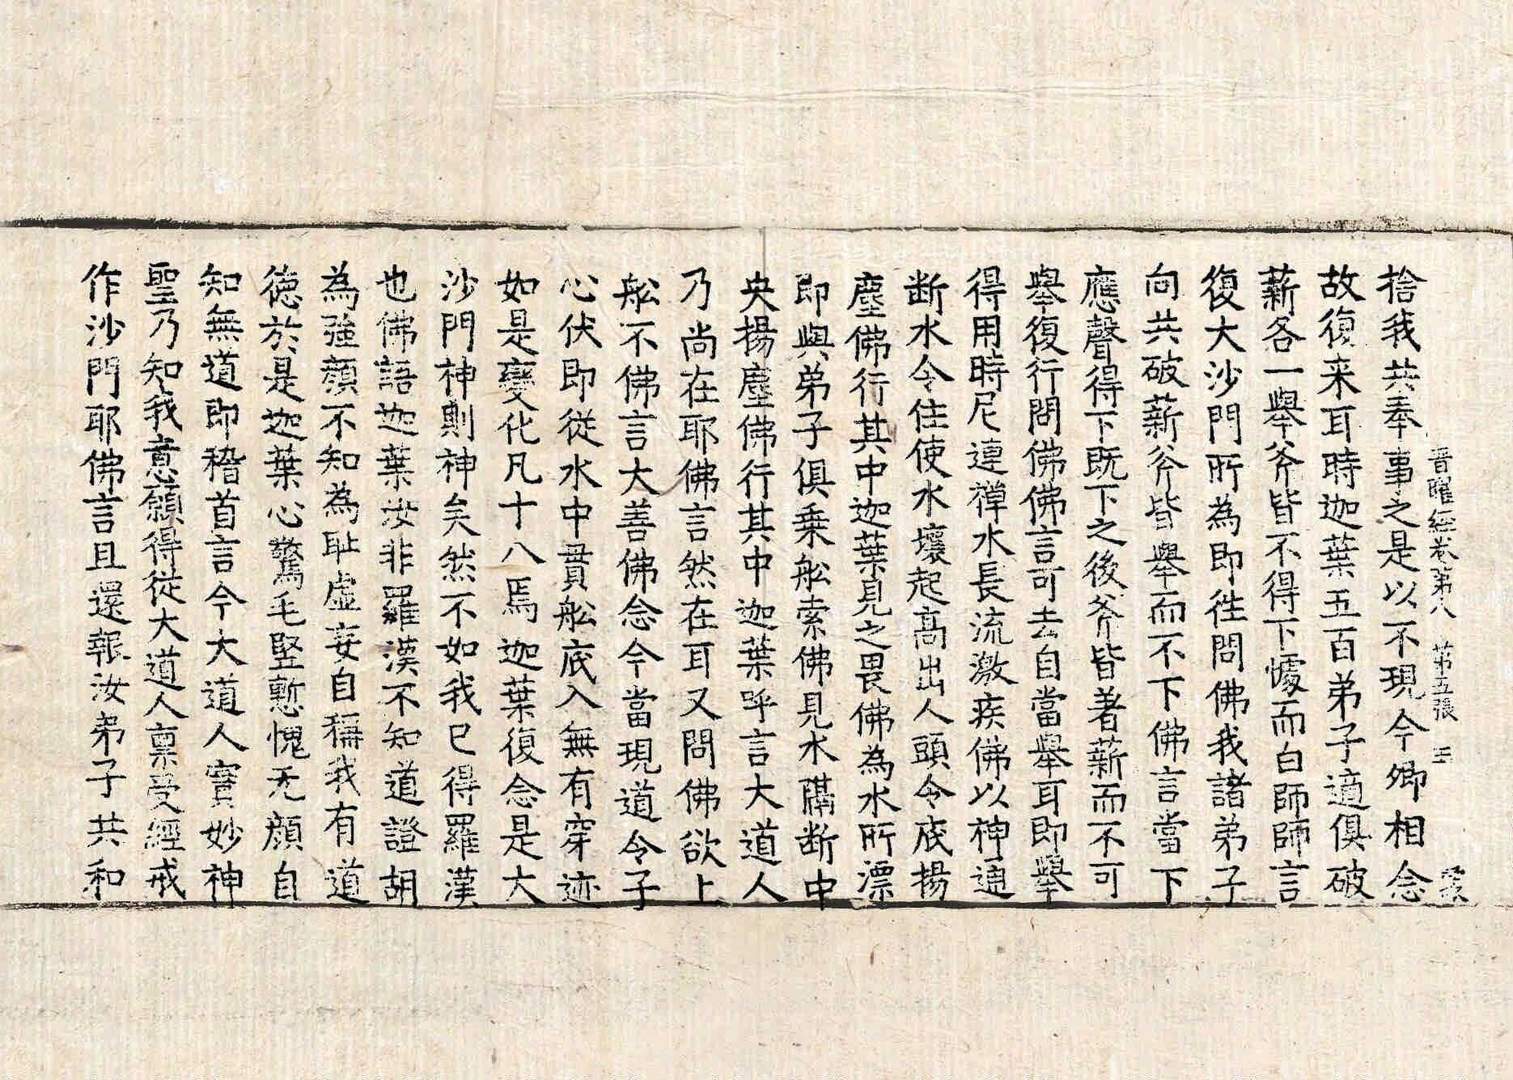 普曜経卷第八　第五張
捨我共奉事之是以不現今卿相念
故復来耳時迦葉五百弟子適俱破
薪各一舉斧皆不得下懅而白師師言
復大沙門所為即往問佛我諸弟子
向共破薪斧皆舉而不下佛言當下
應聲得下既下之後斧皆著薪而不可
舉復行問佛佛言可去自當舉耳即舉
得用時尼連禪水長流激疾佛以神通
断水令住使水壞起髙出人頭令底揚
塵佛行其中迦葉見之畏佛為水所漂
即與弟子俱乗舩索佛見水隔断中
央揚塵佛行其中迦葉呼言大道人
乃尚在耶佛言然在耳又問佛欲上
舩不佛言大善佛念今當現道令子
心伏即從水中貫舩底入無有穿迹
如是變化凡十八焉迦葉復念是大
沙門神則神矣然不如我已得羅漢
也佛語迦葉汝非羅漢不知道證胡
為強顔不知為耻虛妄自稱我有道
徳於是迦葉心驚毛竪慙愧无顔自
知無道即稽首言今大道人實妙神
聖乃知我意願得從大道人禀受經戒
作沙門耶佛言且還報汝弟子共和